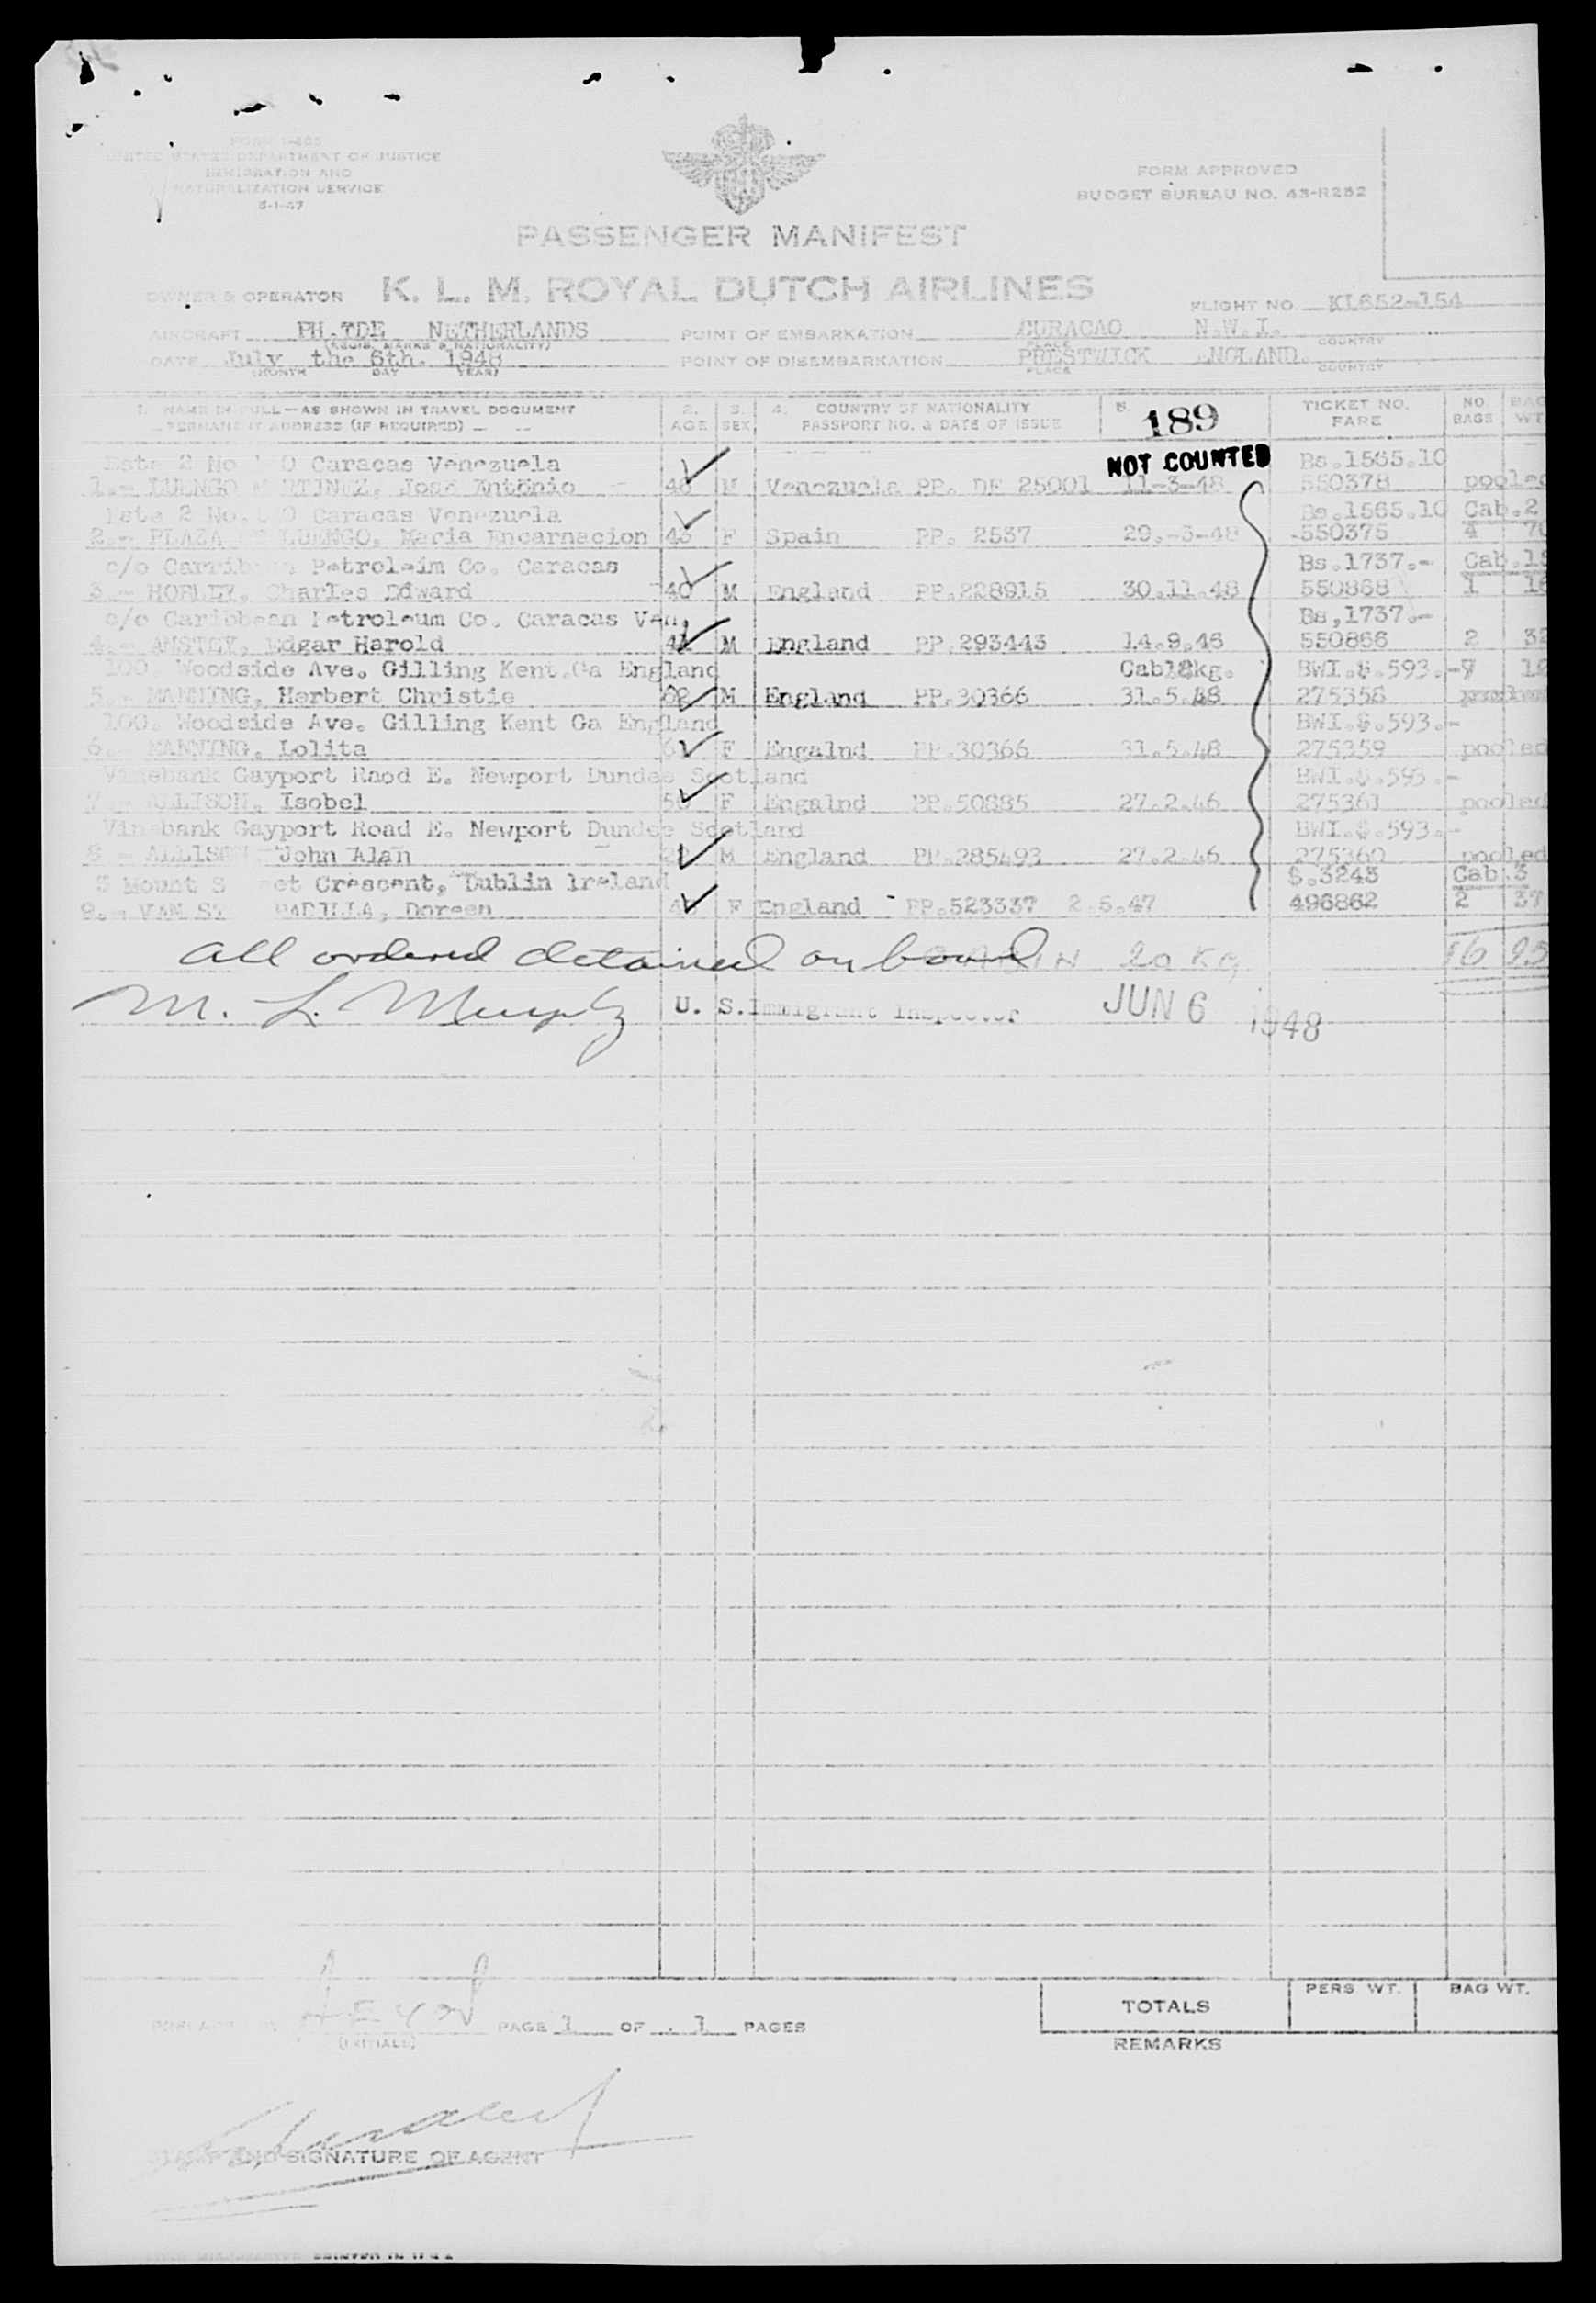 UNITED STATES DEPARTMENT OF JUSTICE
IMMIGRATION AND
NATURALIZATION SERVICE
FORM APPROVED
BUDGET BUREAU NO. 43-R252
PASSENGER MANIFEST
OWNER & OPERATOR K. L. M. ROYAL DUTCH AIRLINES
FLIGHT NO. KL652-154
AIRCRAFT PH.TDE NETHERLANDS POINT OF EMBARKATION CURACAO N.W.I.
(REGIS. MARKS & NATIONALITY) PLACE COUNTRY
DATE July the 6th. 1948 POINT OF DISEMBARKATION PRESTWICK ENGLAND.
(MONTH DAY YEAR) PLACE COUNTRY
1. NAME IN FULL—AS SHOWN IN TRAVEL DOCUMENT 2. 3. 4. COUNTRY OF NATIONALITY 5. 189 TICKET NO. NO. BAG
PERMANENT ADDRESS (IF REQUIRED) AGE SEX PASSPORT NO. & DATE OF ISSUE FARE BAGS WT.
Caracas Venezuela NOT COUNTED Bs.1565.10
1.- LUENGO Jose Antonio M Venezuela PP. DE 25001 11-3-48 550378 pooled
Caracas Venezuela Bs.1565.10 Cab.2
2.- PLAZA LUENGO, Maria Encarnacion F Spain PP. 2537 29.-3-48 550375 4 70
c/o Petroleim Co. Caracas Bs.1737.- Cab.
3.- Charles Edward 40 M England PP.228915 30.11.48 550868 1
c/o Caribbean Petroleum Co. Caracas Ven. Bs,1737.-
4.- ANSTEY, Edgar Harold M England PP.293443 14.9.46 550866 2
100. Woodside Ave. Gilling Kent.Ga England Cab18kg. BWI.$.593.-
5.- MANNING, Herbert Christie M England PP.30366 31.5.48 275358
100. Woodside Ave. Gilling Kent Ga England BWI.$.593.-
6.- MANNING, Lolita F Engalnd PP.30366 31.5.48 275359 pooled
Vinebank Gayport Raod E. Newport Dundee Scotland BWI.$.593.-
7.- ALLISON, Isobel F Engalnd PP.50885 27.2.46 275361 pooled
Vinebank Gayport Road E. Newport Dundee Scotland BWI.$.593.-
8 - ALLISON John Alan M England PP.285493 27.2.46 275360 pooled
3 Mount Crescent, Dublin Ireland $.3243 Cab.3
9.- VAN PADILLA, Doreen F England PP.523337 2.5.47 496862 2 37
All ordered detained on board 20 KG 16
M. L. Murphy U. S. Immigrant Inspector JUN 6 1948
PAGE 1 OF 1 PAGES
(INITIALS)
TOTALS PERS. WT. BAG WT.
REMARKS
AND SIGNATURE OF AGENT